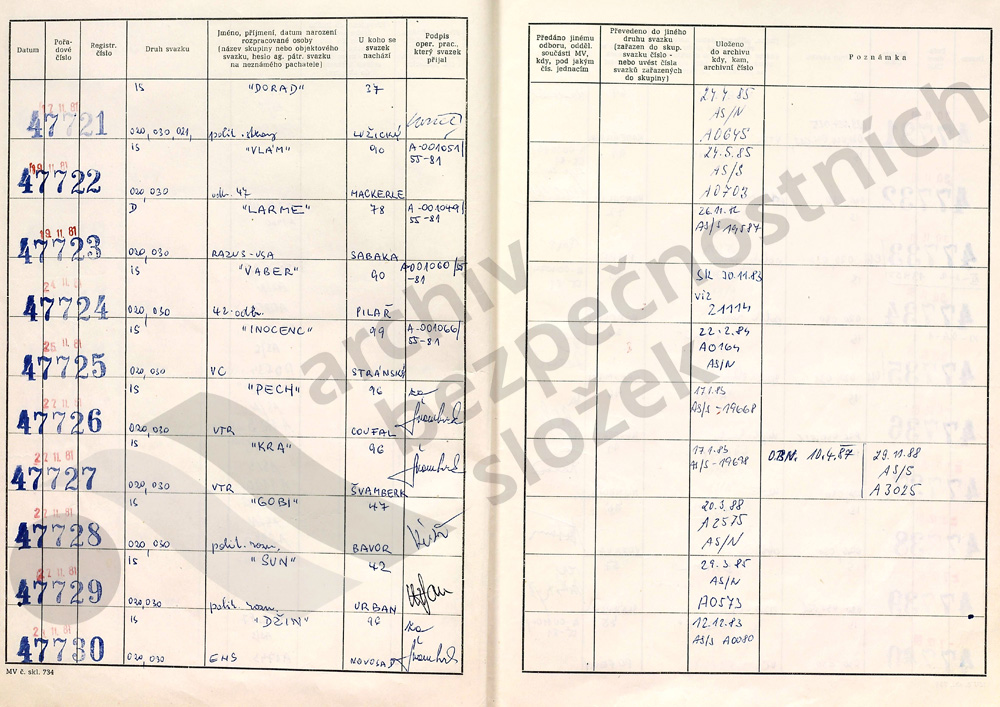 Datum
Pořadové číslo
Registr. číslo
Druh svazku
Jméno, příjmení, datum narození
rozpracované osoby
(název skupiny nebo objektového
svazku, heslo ag. pátr. svazku
na neznámého pachatele)
U koho se
svazek
nachází
Podpis
oper. prac.,
který svazek
přijal
Předáno jinému
odboru, odděl.
součásti MV,
kdy, pod jakým
čís. jednacím
Převedeno do jiného
druhu svazku
(zařazen do skup.
svazku číslo -
nebo uvést čísla
svazků zařazených
do skupiny)
Uloženo
do archivu
kdy, kam,
archivní číslo
Poznámka
IS "DORAD" 37 24.4.85
AS/N
47721 020,030,021, polit. LUŽICKÝ A0645
IS "VLÁM" 90 A-001051/55-81 24.5.85
19.11.81 AS/S
47722 020,030 odb. 47 MACKERLE A0703
D "LARME" 78 A-001049/55-81 26.11.
19.11.81 AS/S 19587
47723 020,030 RAZUS-USA SABAKA
IS "VABER" 90 A-001060/55-81 SK 30.11.83
viz
47724 020,030 42.odb. PILAŘ 21114
IS "INOCENC" 99 A-001066/55-81 22.2.84
A0164
47725 020,030 VC STRÁNSKÝ AS/N
IS "PECH" 96 17.1.85
AS/S-19668
47726 020,030 VTR COUFAL
"KRA" 96 17.1.85 OBN. 10.4.87 29.11.88
AS/S-19678 AS/S
47727 020,030 VTR ŠVAMBERK A3025
IS "GOBI" 47 20.3.88
A2575
47728 020,030 polit. rozv. BAVOR AS/N
IS "SUN" 42 29.3.85
AS/N
47729 020,030 polit. rozv. URBAN A0573
IS "DŽIN" 96 12.12.83
AS/S A0080
47730 020,030 EHS NOVOSAD
MV č. skl. 734
archiv
bezpečnostních
složek